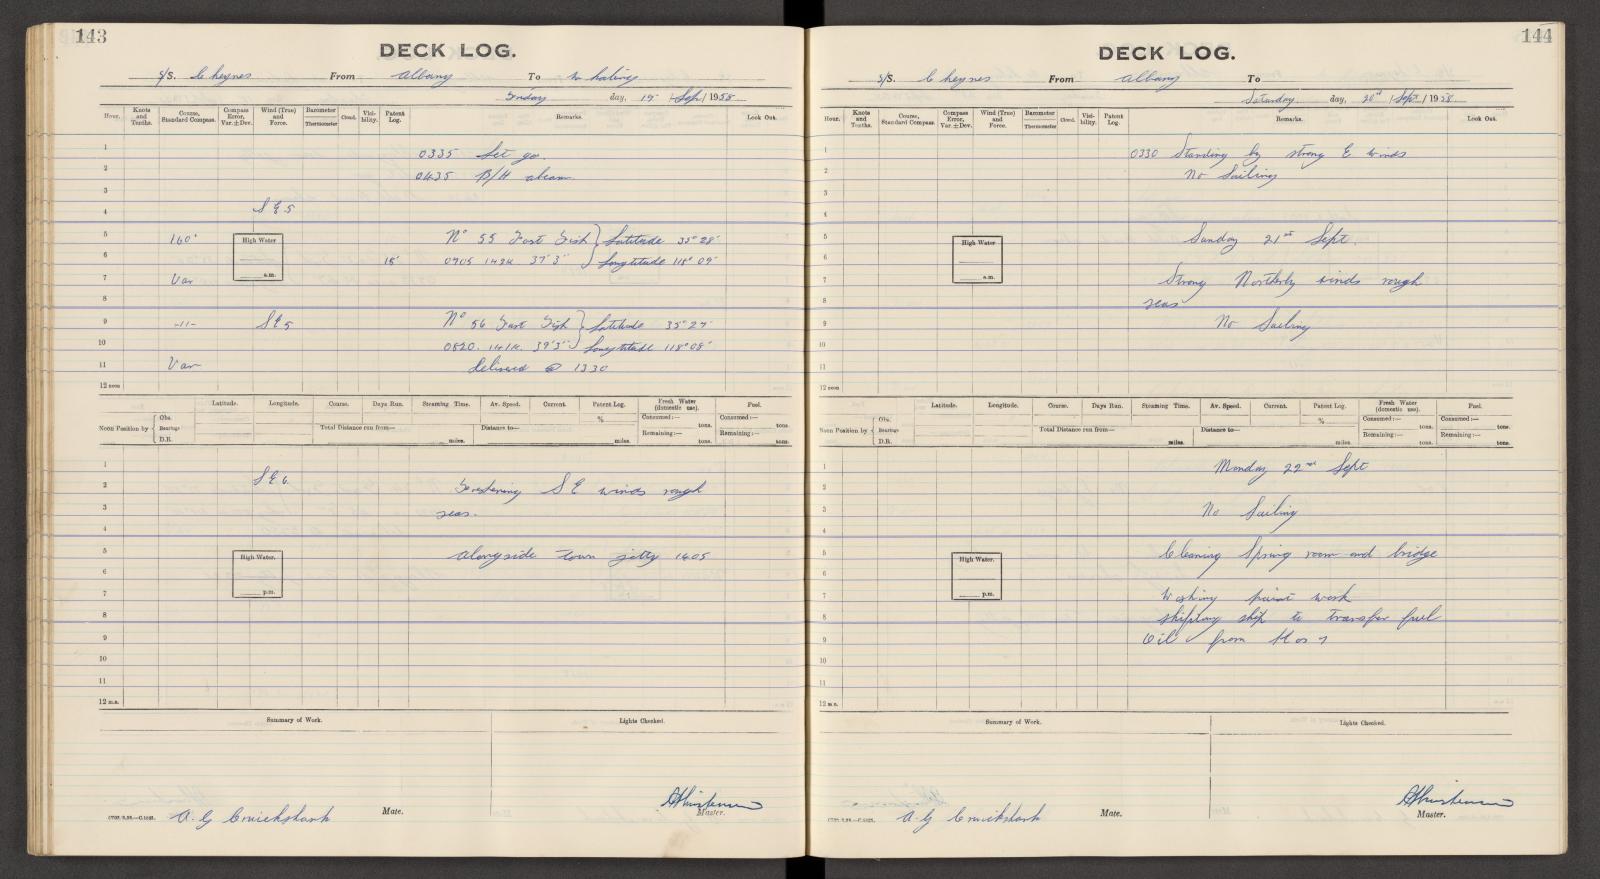 143
DECK LOG.
S/S. Cheynes From Albany To Whaling
Friday day, 19 / Sept / 1958
Hour. Knots and Tenths. Course, Standard Compass. Compass Error, Var. ± Dev. Wind (True) and Force. Barometer Thermometer Cloud. Visi- bility. Patent Log. Remarks. Look Out.
1
0335 Let go.
2 0435 B/H abeam
3
4 S E 5
5 160° High Water No 55 Fast Fish } Latitude 35° 28'
6 18' 0705 142R. 37'3" } Longtitude 118° 09'
7 Var a.m.
8
9 -11- S E 5 No 56 Fast Fish } Latitude 35° 27'
10 0820. 141R. 39'3" } Longtitude 118° 08'
11 Var delivered @ 1330
12 noon
Latitude. Longitude. Course. Days Run. Steaming Time. Av. Speed. Current. Patent Log. Fresh Water (domestic use). Fuel.
Noon Position by Obs. Bearings D.R. % Consumed:— tons. Consumed:— tons.
Total Distance run from— miles. Distance to— miles. Remaining:— tons. Remaining:— tons.
1
2 S E 6 Freshening S E winds rough
3 seas.
4
5 High Water. Alongside Town jetty 1405
6
7 p.m.
8
9
10
11
12 m.n.
Summary of Work. Lights Checked.
A. G Cruickshank Mate. Master.
144
DECK LOG.
S/S. Cheynes From Albany To
Saturday day, 20th / Sept / 1958
Hour. Knots and Tenths. Course, Standard Compass. Compass Error, Var. ± Dev. Wind (True) and Force. Barometer Thermometer Cloud. Visi- bility. Patent Log. Remarks. Look Out.
1 0330 Standing by strong E winds
2 No Sailing
3
4
5 High Water Sunday 21st Sept.
6
7 a.m. Strong Northerly winds rough
8 seas
9 No Sailing
10
11
12 noon
Latitude. Longitude. Course. Days Run. Steaming Time. Av. Speed. Current. Patent Log. Fresh Water (domestic use). Fuel.
Noon Position by Obs. Bearings D.R. % Consumed:— tons. Consumed:— tons.
Total Distance run from— miles. Distance to— miles. Remaining:— tons. Remaining:— tons.
1 Monday 22nd Sept
2
3 No Sailing
4
5 High Water. Cleaning Spring room and bridge
6
7 p.m. Washing paint work
8 shifting ship to transfer fuel
9 Oil from
10
11
12 m.n.
Summary of Work. Lights Checked.
A. G Cruickshank Mate. Master.